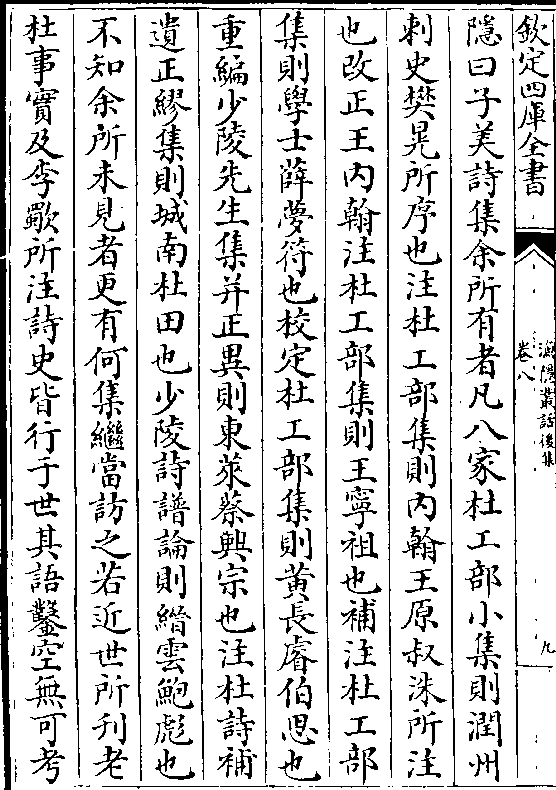 欽定四庫全書
漁隱叢話後集
卷八
九
隱曰子美詩集余所有者凡八家杜工部小集則潤州
刺史樊晃所序也注杜工部集則內翰王原叔洙所注
也改正王內翰注杜工部集則王寧祖也補注杜工部
集則學士薛夢符也校定杜工部集則黃長睿伯思也
重編少陵先生集并正異則東萊蔡興宗也注杜詩補
遺正繆集則城南杜田也少陵詩譜論則縉雲鮑彪也
不知余所未見者更有何集繼當訪之若近世所刋老
杜事實及李歜所注詩史皆行于世其語鑿空無可考